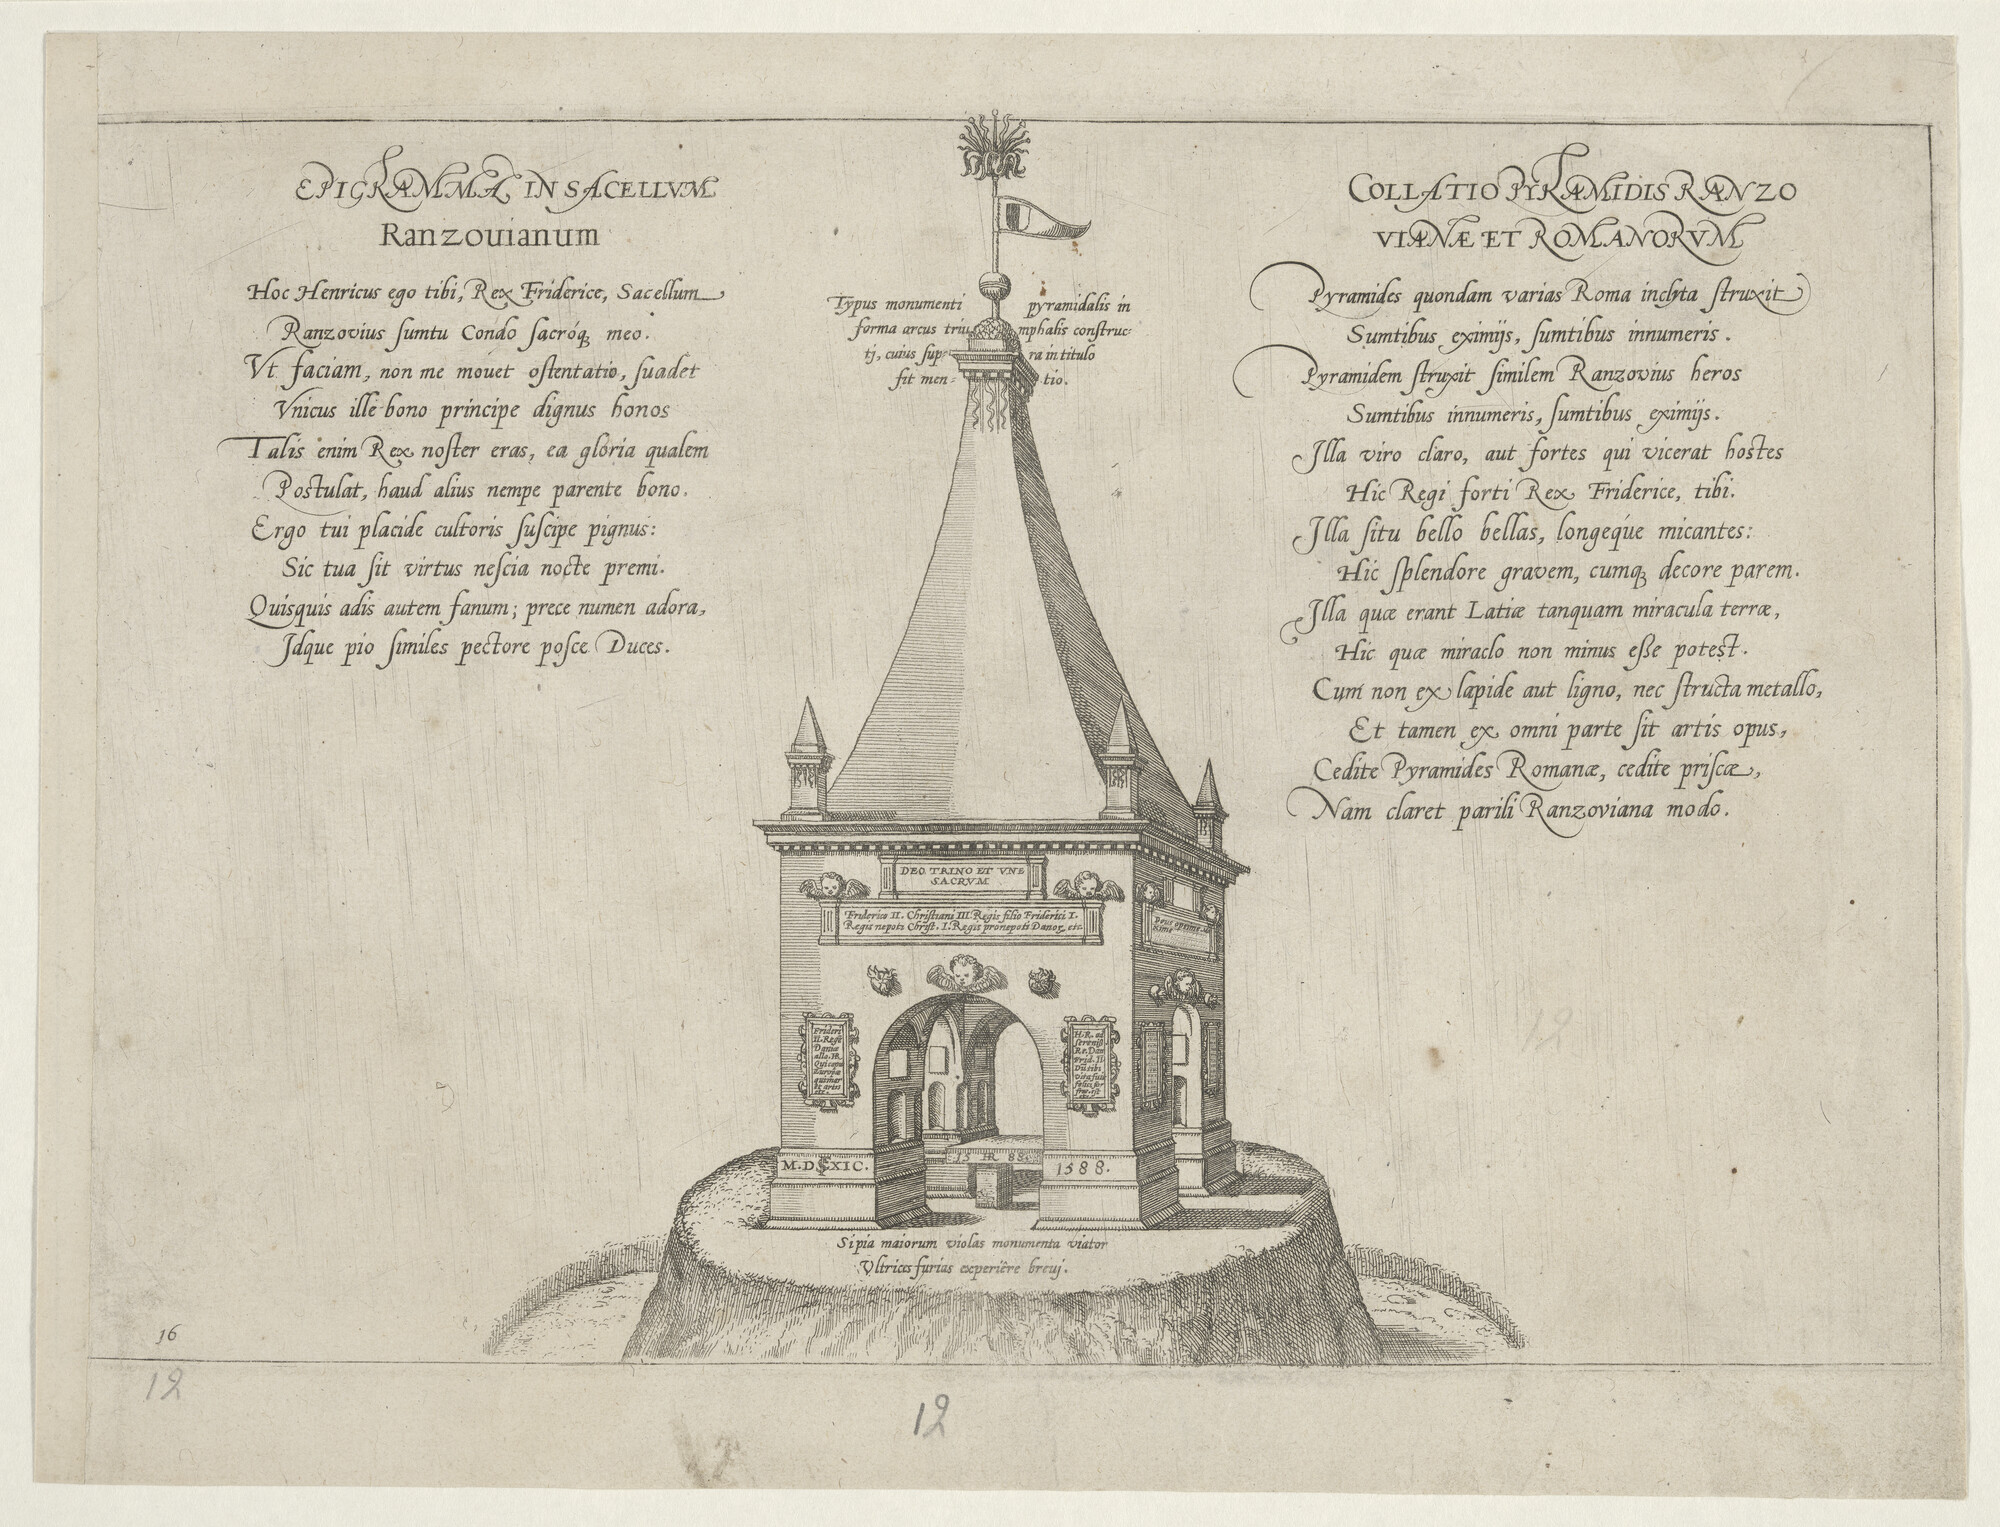 EPIGRAMMA IN SACELLVM
Ranzouianum
Hoc Henricus ego tibi, Rex Friderice, Sacellum
Ranzovius sumtu Condo sacróq; meo.
Vt faciam, non me mouet ostentatio, suadet
Vnicus ille bono principe dignus honos
Talis enim Rex noster eras, ea gloria qualem
Postulat, haud alius nempe parente bono.
Ergo tui placide cultoris suscipe pignus:
Sic tua sit virtus nescia nocte premi.
Quisquis adis autem fanum; prece numen adora,
Idque pio similes pectore posce Duces.
Typus monumenti pyramidalis in
forma arcus triumphalis construc-
tj, cuius supra in titulo
fit men-tio.
COLLATIO PYRAMIDIS RANZO
VIANÆ ET ROMANORVM
Pyramides quondam varias Roma inclyta struxit
Sumtibus eximijs, sumtibus innumeris.
Pyramidem struxit similem Ranzovius heros
Sumtibus innumeris, sumtibus eximijs.
Illa viro claro, aut fortes qui vicerat hostes
Hic Regi forti Rex Friderice, tibi.
Illa situ bello bellas, longeque micantes:
Hic splendore gravem, cumq; decore parem.
Illa quæ erant Latiæ tanquam miracula terræ,
Hic quæ miraclo non minus esse potest.
Cum non ex lapide aut ligno, nec structa metallo,
Et tamen ex omni parte sit artis opus,
Cedite Pyramides Romanæ, cedite priscæ,
Nam claret parili Ranzoviana modo.
DEO TRINO ET VNE
SACRVM
Friderico II. Christiani III Regis filio Friderici I.
Regis nepoti Christ. I. Regis pronepoti Danor, etc.
Deus optime
Frideri
II. Regi
Daniæ
allo. HR
Qui copia
Europæ
H. R. ad
sereniss
Re. Dan
Frid. II
Dii tibi
M.D.XIC.
15 HR 88.
1588.
Si pia maiorum violas monumenta viator
Vltrices furias experiêre breuj.
16
12
12